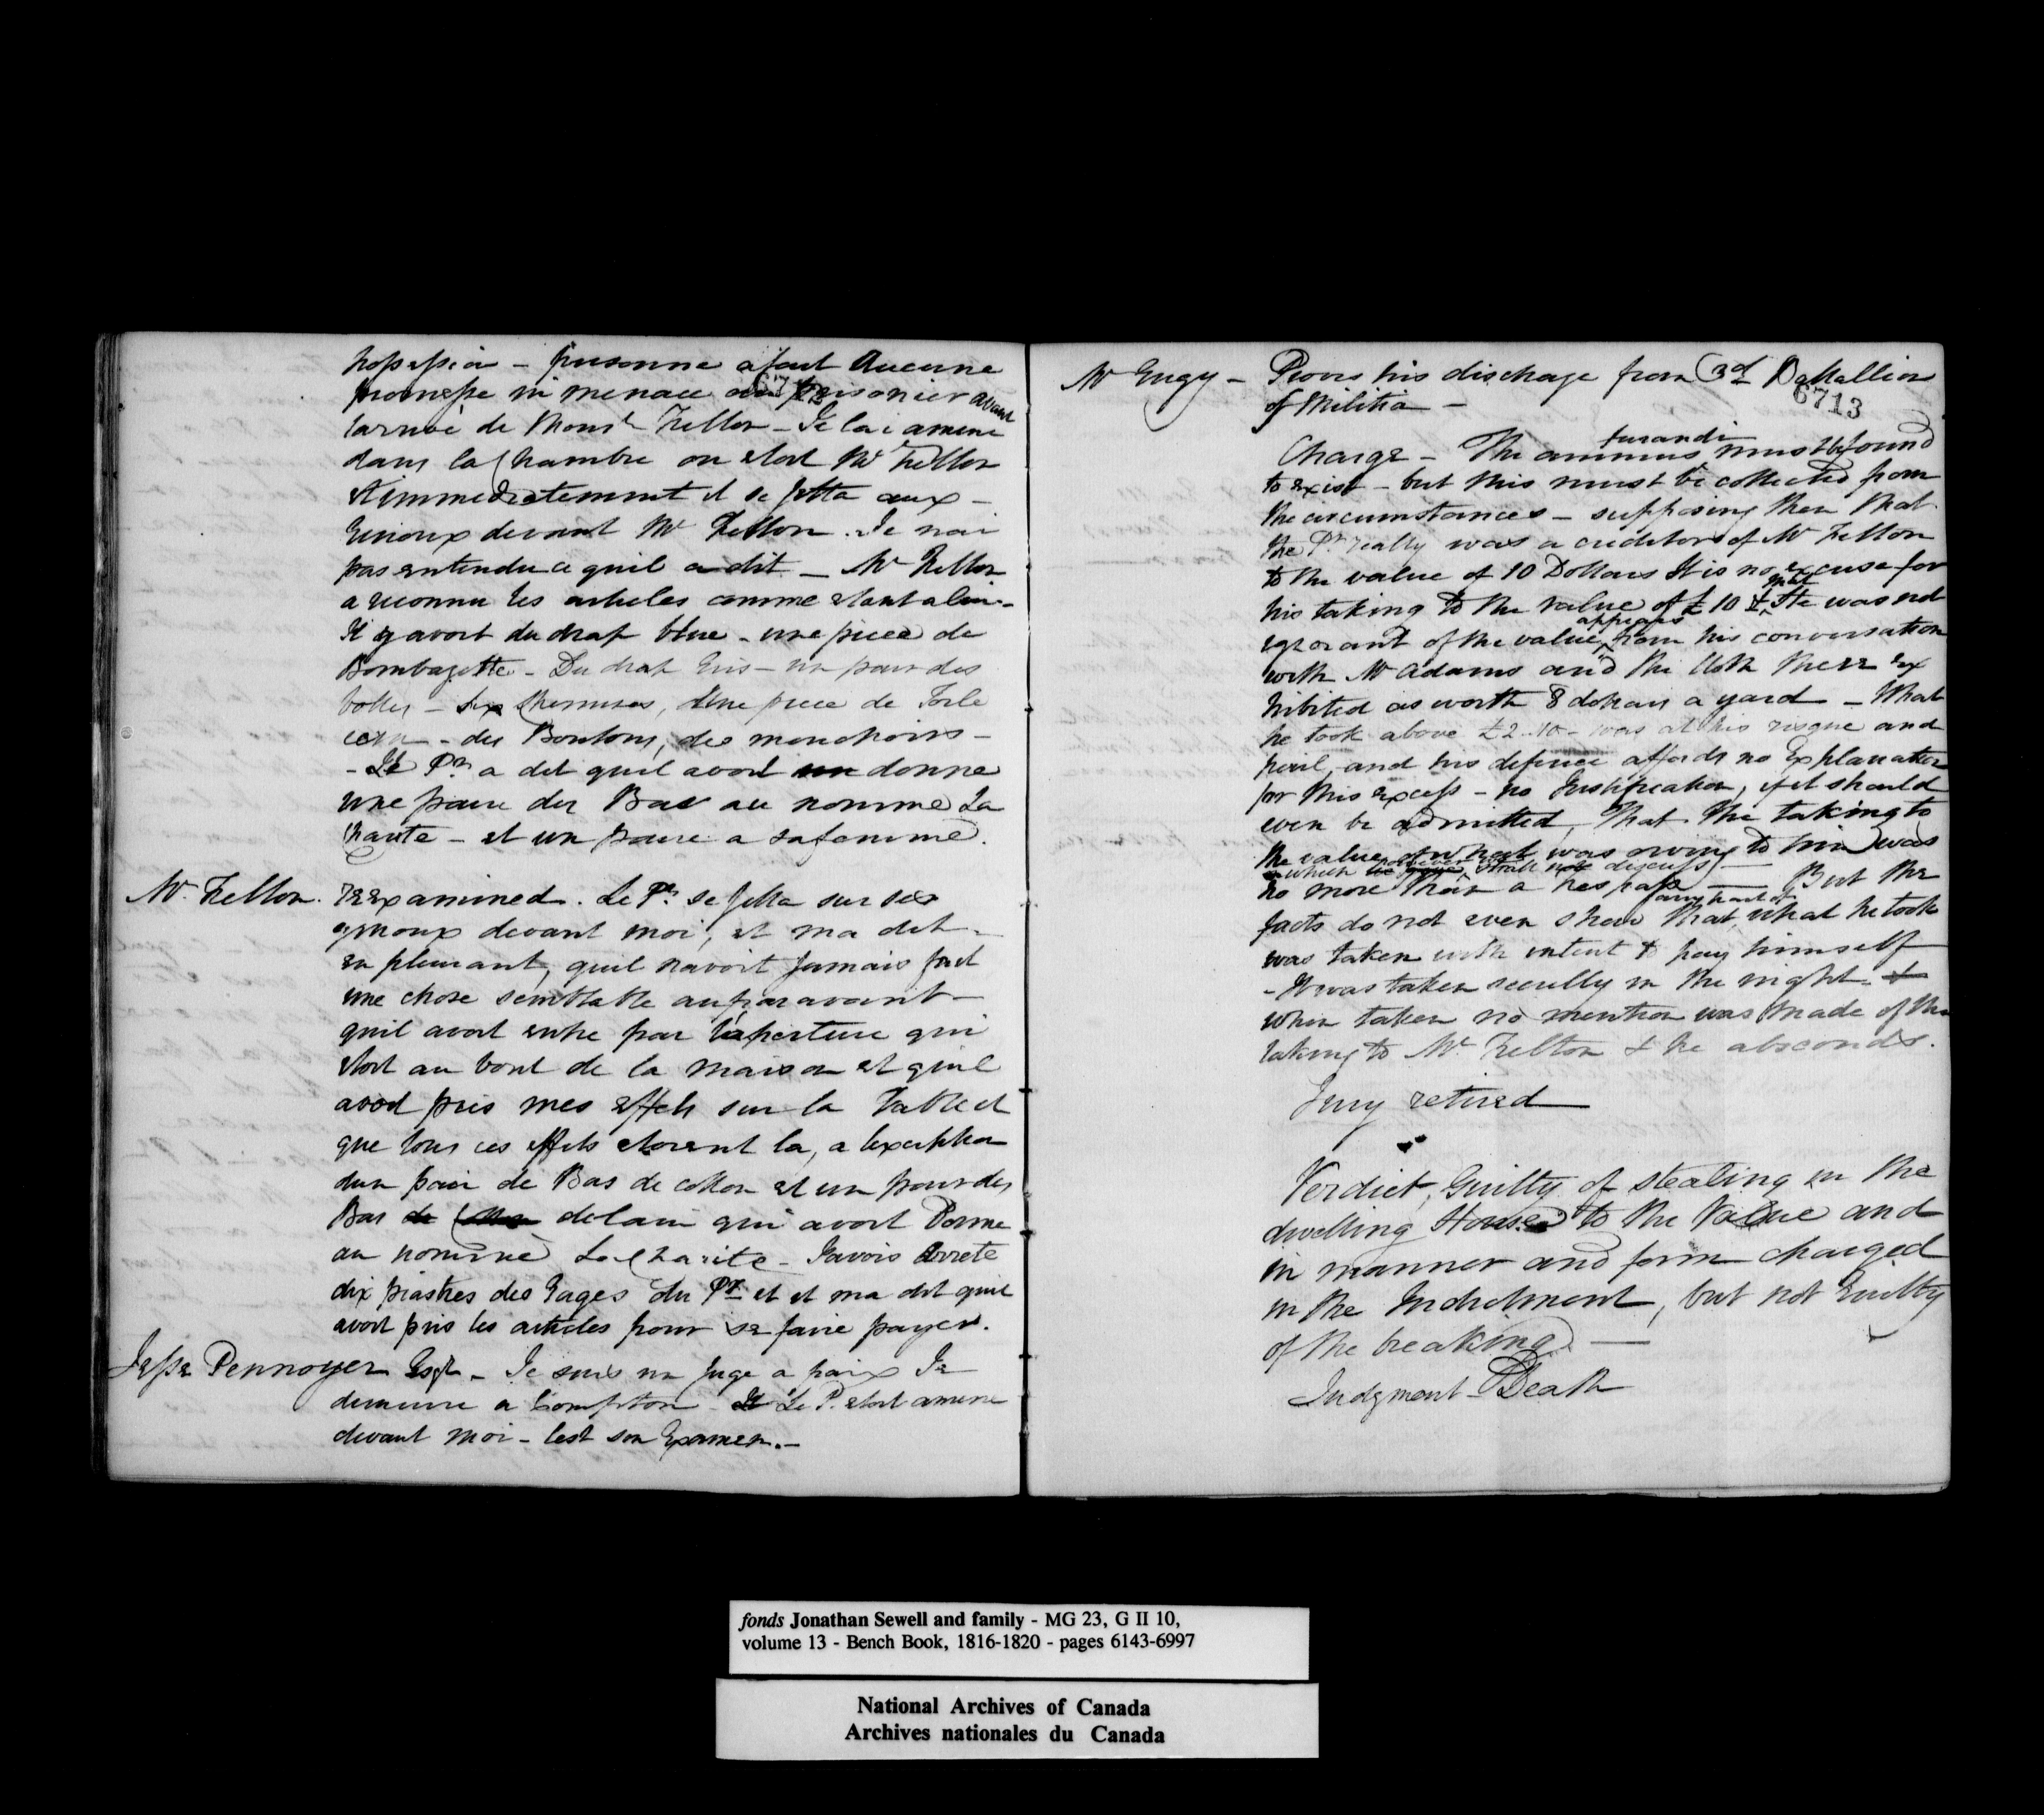 possession - personne a fait aucune
promesse ni menace au prisonier avant
6712
larrivé de Monsr Felton - Je lai amené
dans la Chambre ou etoit Mr Felton
et immediatement il se jetta aux -
Genoux devant Mr Felton. Je nai
pas entendu ce quil a dit - Mr Felton
a reconnu les articles comme etant a lui -
Il y avoit du drap bleue - une piece de
Bombazette - Du drap Gris - un pair des
bottes - six Chemises, une piece de Toile
- des Boutons, des mouchoirs -
- Le Pr a dit quil avoit donne
une paire des Bas au nomme La
Charite - et un paire a sa femme.
Mr Felton. reexamined. Le Pr se jetta sur ses
genoux devant moi, et ma dit -
en pleurant, quil navoit jamais fait
une chose semblable auparavant -
quil avoit entre par laperture qui
etoit au bout de la maison et quil
avoit pris mes effets sur la Table et
que tous ces effets etoient la, a lexception
dun pair de Bas de cotton et un pair des
Bas de laine qui avoit Donne
au nommé La Charite - Javois arreté
dix piastres des Gages du Pr et il ma dit quil
avoit pris les articles pour se faire payer.
Jesse Pennoyer Esqr - Je suis un Juge a paix Je
demeure a Compton - Le P. etoit amene
devant moi - Cest son Examen. -
Mr Gugy - Proves his discharge from 3d Battallion
of Militia -
6713
Charge - The animus furandi must be found
to exist - but this must be collected from
the circumstances - supposing then that
the Pr really was a creditor of Mr Felton
to the value of 10 Dollars It is no excuse for
his taking to the value of £ 10 & that He was not
ignorant of the value appears from his conversation
with Mr Adams and the Cloth there ex
hibited is worth 8 dollars a yard - What
he took above £2.10 - was at his risque and
peril, and his defence affords no Explanation
for this excess - no Justification, if it should
even be admitted, that the taking to
the value of what was owing to him was
no more than a trespass - (which however I shall not discuss) - But the
facts do not even shew that any part of what he took
was taken with intent to pay himself
- It was taken secretly in the night. &
when taken no mention was made of the
taking to Mr Felton & he absconds.
Jury retired
Verdict, Guilty of stealing in the
dwelling House to the Value and
in manner and form charged
in the Indictment, but not Guilty
of the breaking -
Judgment - Death
fonds Jonathan Sewell and family - MG 23, G II 10,
volume 13 - Bench Book, 1816-1820 - pages 6143-6997
National Archives of Canada
Archives nationales du Canada